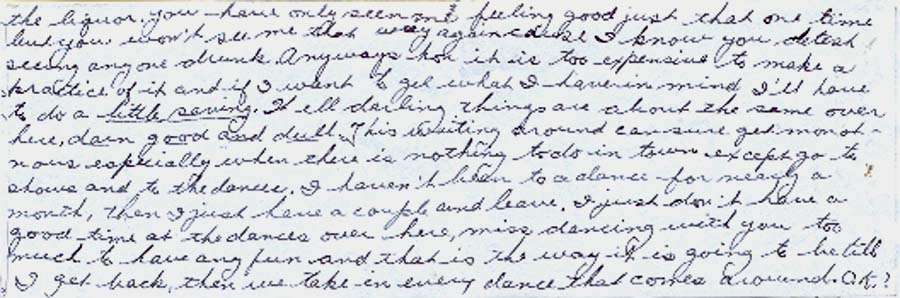 the liquor, you have only seen me feeling good just that one time
but you won't see me that way again cause I know you detest
seeing anyone drunk. Anyways hon it is too expensive to make a
practice of it and if I want to get what I have in mind I'll have
to do a little saving. Well darling things are about the same over
here, darn good and dull. This waiting around can sure get monot-
nous especially when there is nothing to do in town except go to
shows and to the dances. I haven't been to a dance for nearly a
month, then I just have a couple and leave. I just don't have a
good time at the dances over here, miss dancing with you too
much to have any fun and that is the way it is going to be till
I get back, then we take in every dance that comes around. O.K.?